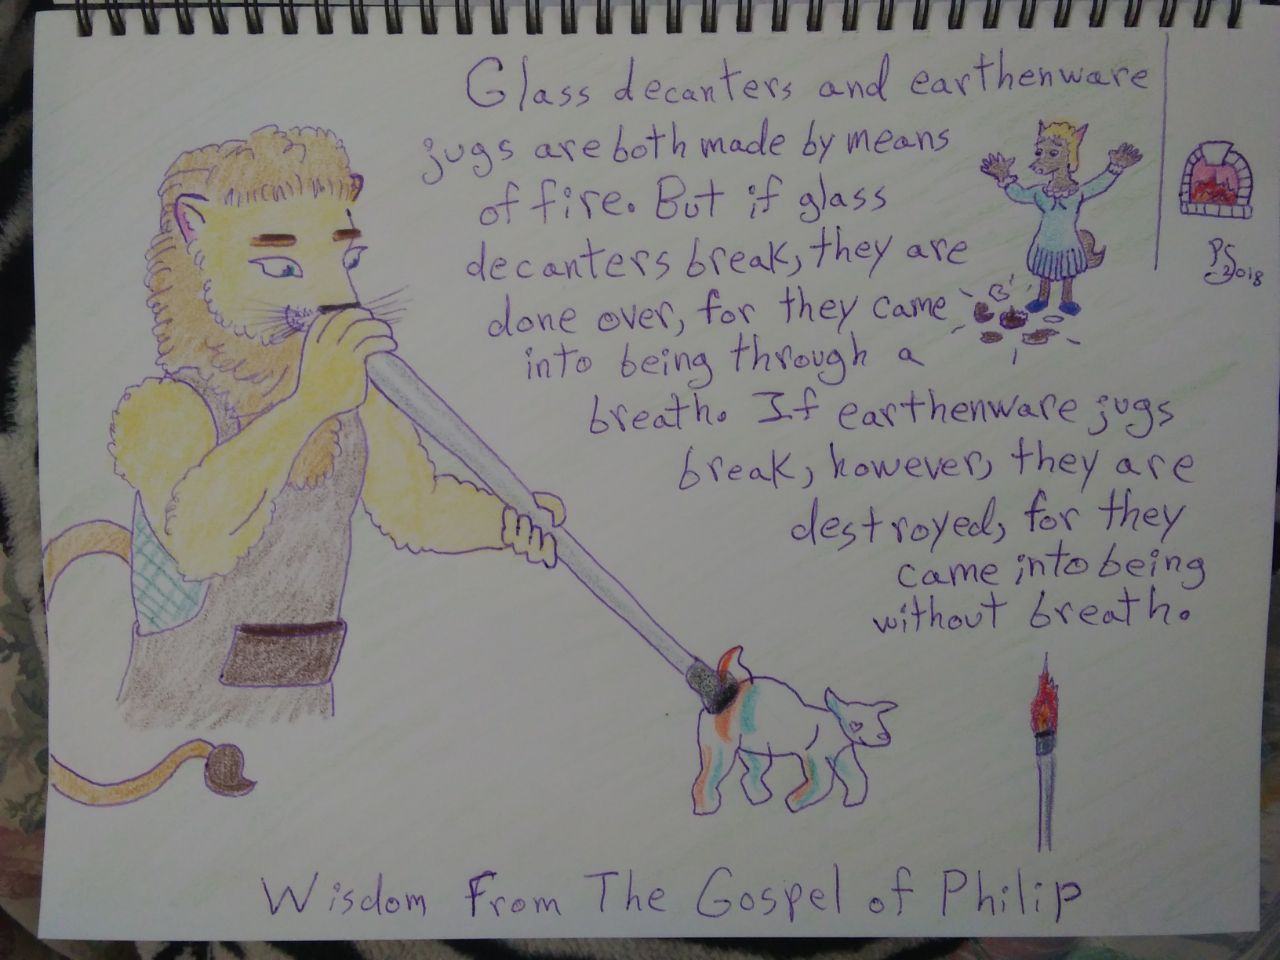 Glass decanters and earthenware
jugs are both made by means
of fire. But if glass
decanters break, they are
done over, for they came
into being through a
breath. If earthenware jugs
break, however, they are
destroyed, for they
came into being
without breath.
PS
2018
Wisdom From The Gospel of Philip